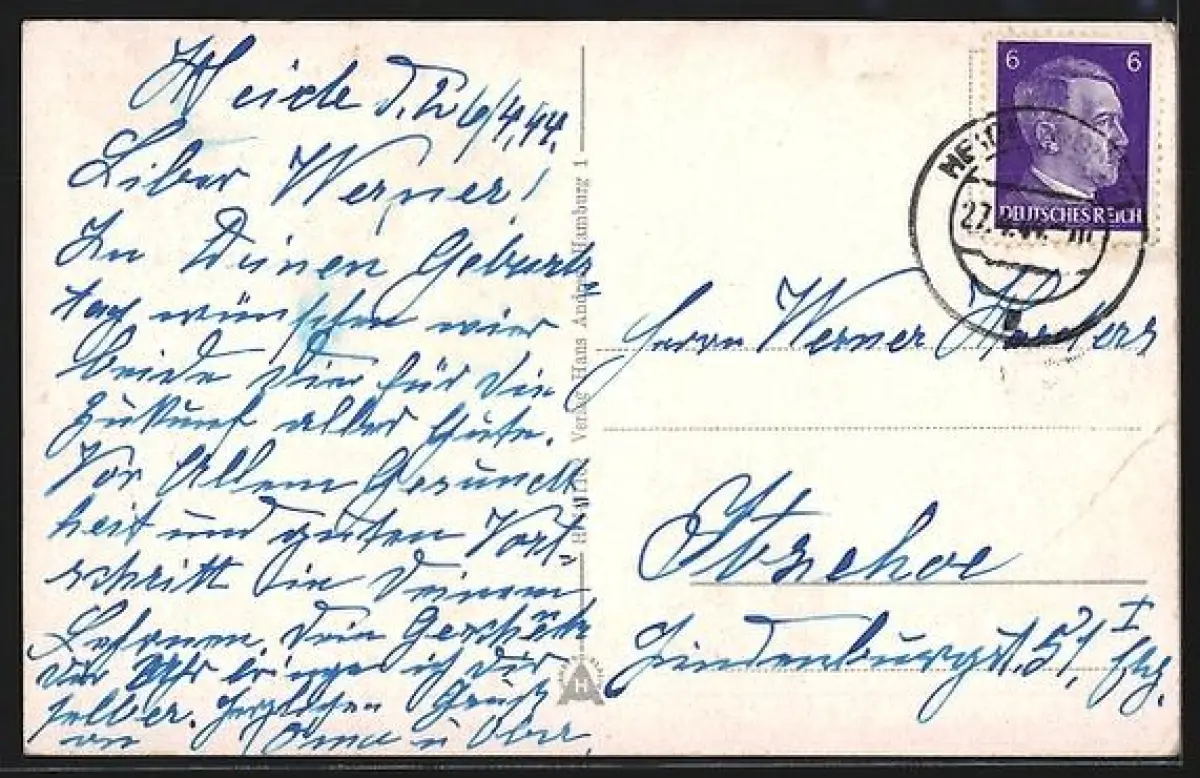 Heide d. 26/4.44.
Liber Werner!
Zu Deinen Geburts
tag wünschen wier
beide Dier für die
Zukunf alles Gute.
Vor Allem Gesundt
heit und guten Vort-
schritt in Deinem
Lehrnen. Dein Geschänk
die Uhr bringe ich Dir
selber. Herzlichen Gruß
von Oma u
Verlag Hans Andres Hamburg 1
H
6 6
DEUTSCHES REICH
HEIDE
27.4.44.
Herrn Werner
Itzehoe
Hindenburgst. 57, I